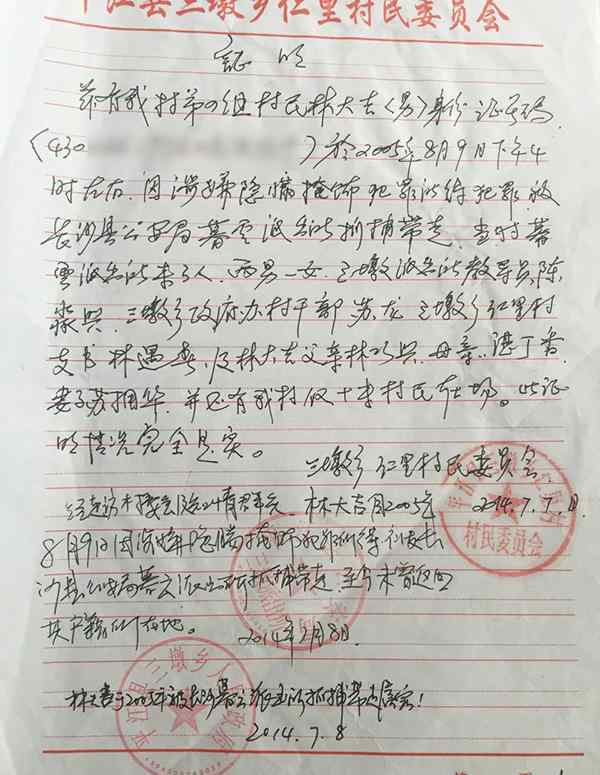 平江县三墩乡仁里村民委员会
証明
兹有我村第四组村民林大吉（男）身份证号码
（430 ）於2005年8月9日下午4
时左右，因涉嫌隐瞒掩饰犯罪所得犯罪被
长沙县公安局暮云派出所抓捕带走，当时暮
云派出所来了人，两男一女，三墩派出所教导员陈
淼兴，三墩乡政府办村干部苏龙，三墩乡仁里村
支书林遇春，及林大吉父亲林以兴，母亲湛丁香，
妻子苏拥华，并还有我村仅十来村民在场。此证
明情况完全属实。
三墩乡仁里村民委员会
2014.7.7日
林大吉因2005年
8月9日因涉嫌隐瞒掩饰犯罪所得 被长
沙县公安局暮云派出所抓捕带走，至今未曾返回
其户籍所在地。
2014年7月8日
林大吉于2005年被长沙暮云派出所抓捕带走属实！
2014.7.8
村民委员会
平江县三墩乡人民政府